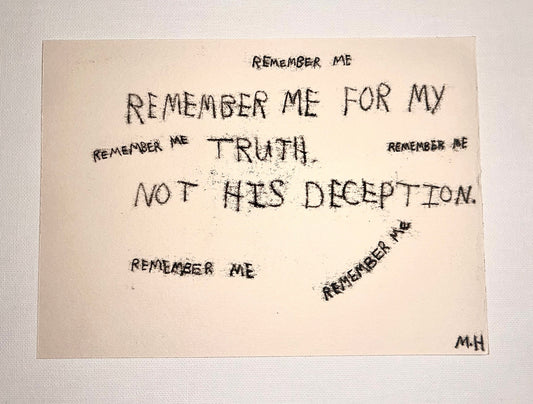 REMEMBER ME
REMEMBER ME FOR MY
REMEMBER ME
TRUTH.
REMEMBER ME
NOT HIS DECEPTION.
REMEMBER ME
REMEMBER ME
M.H